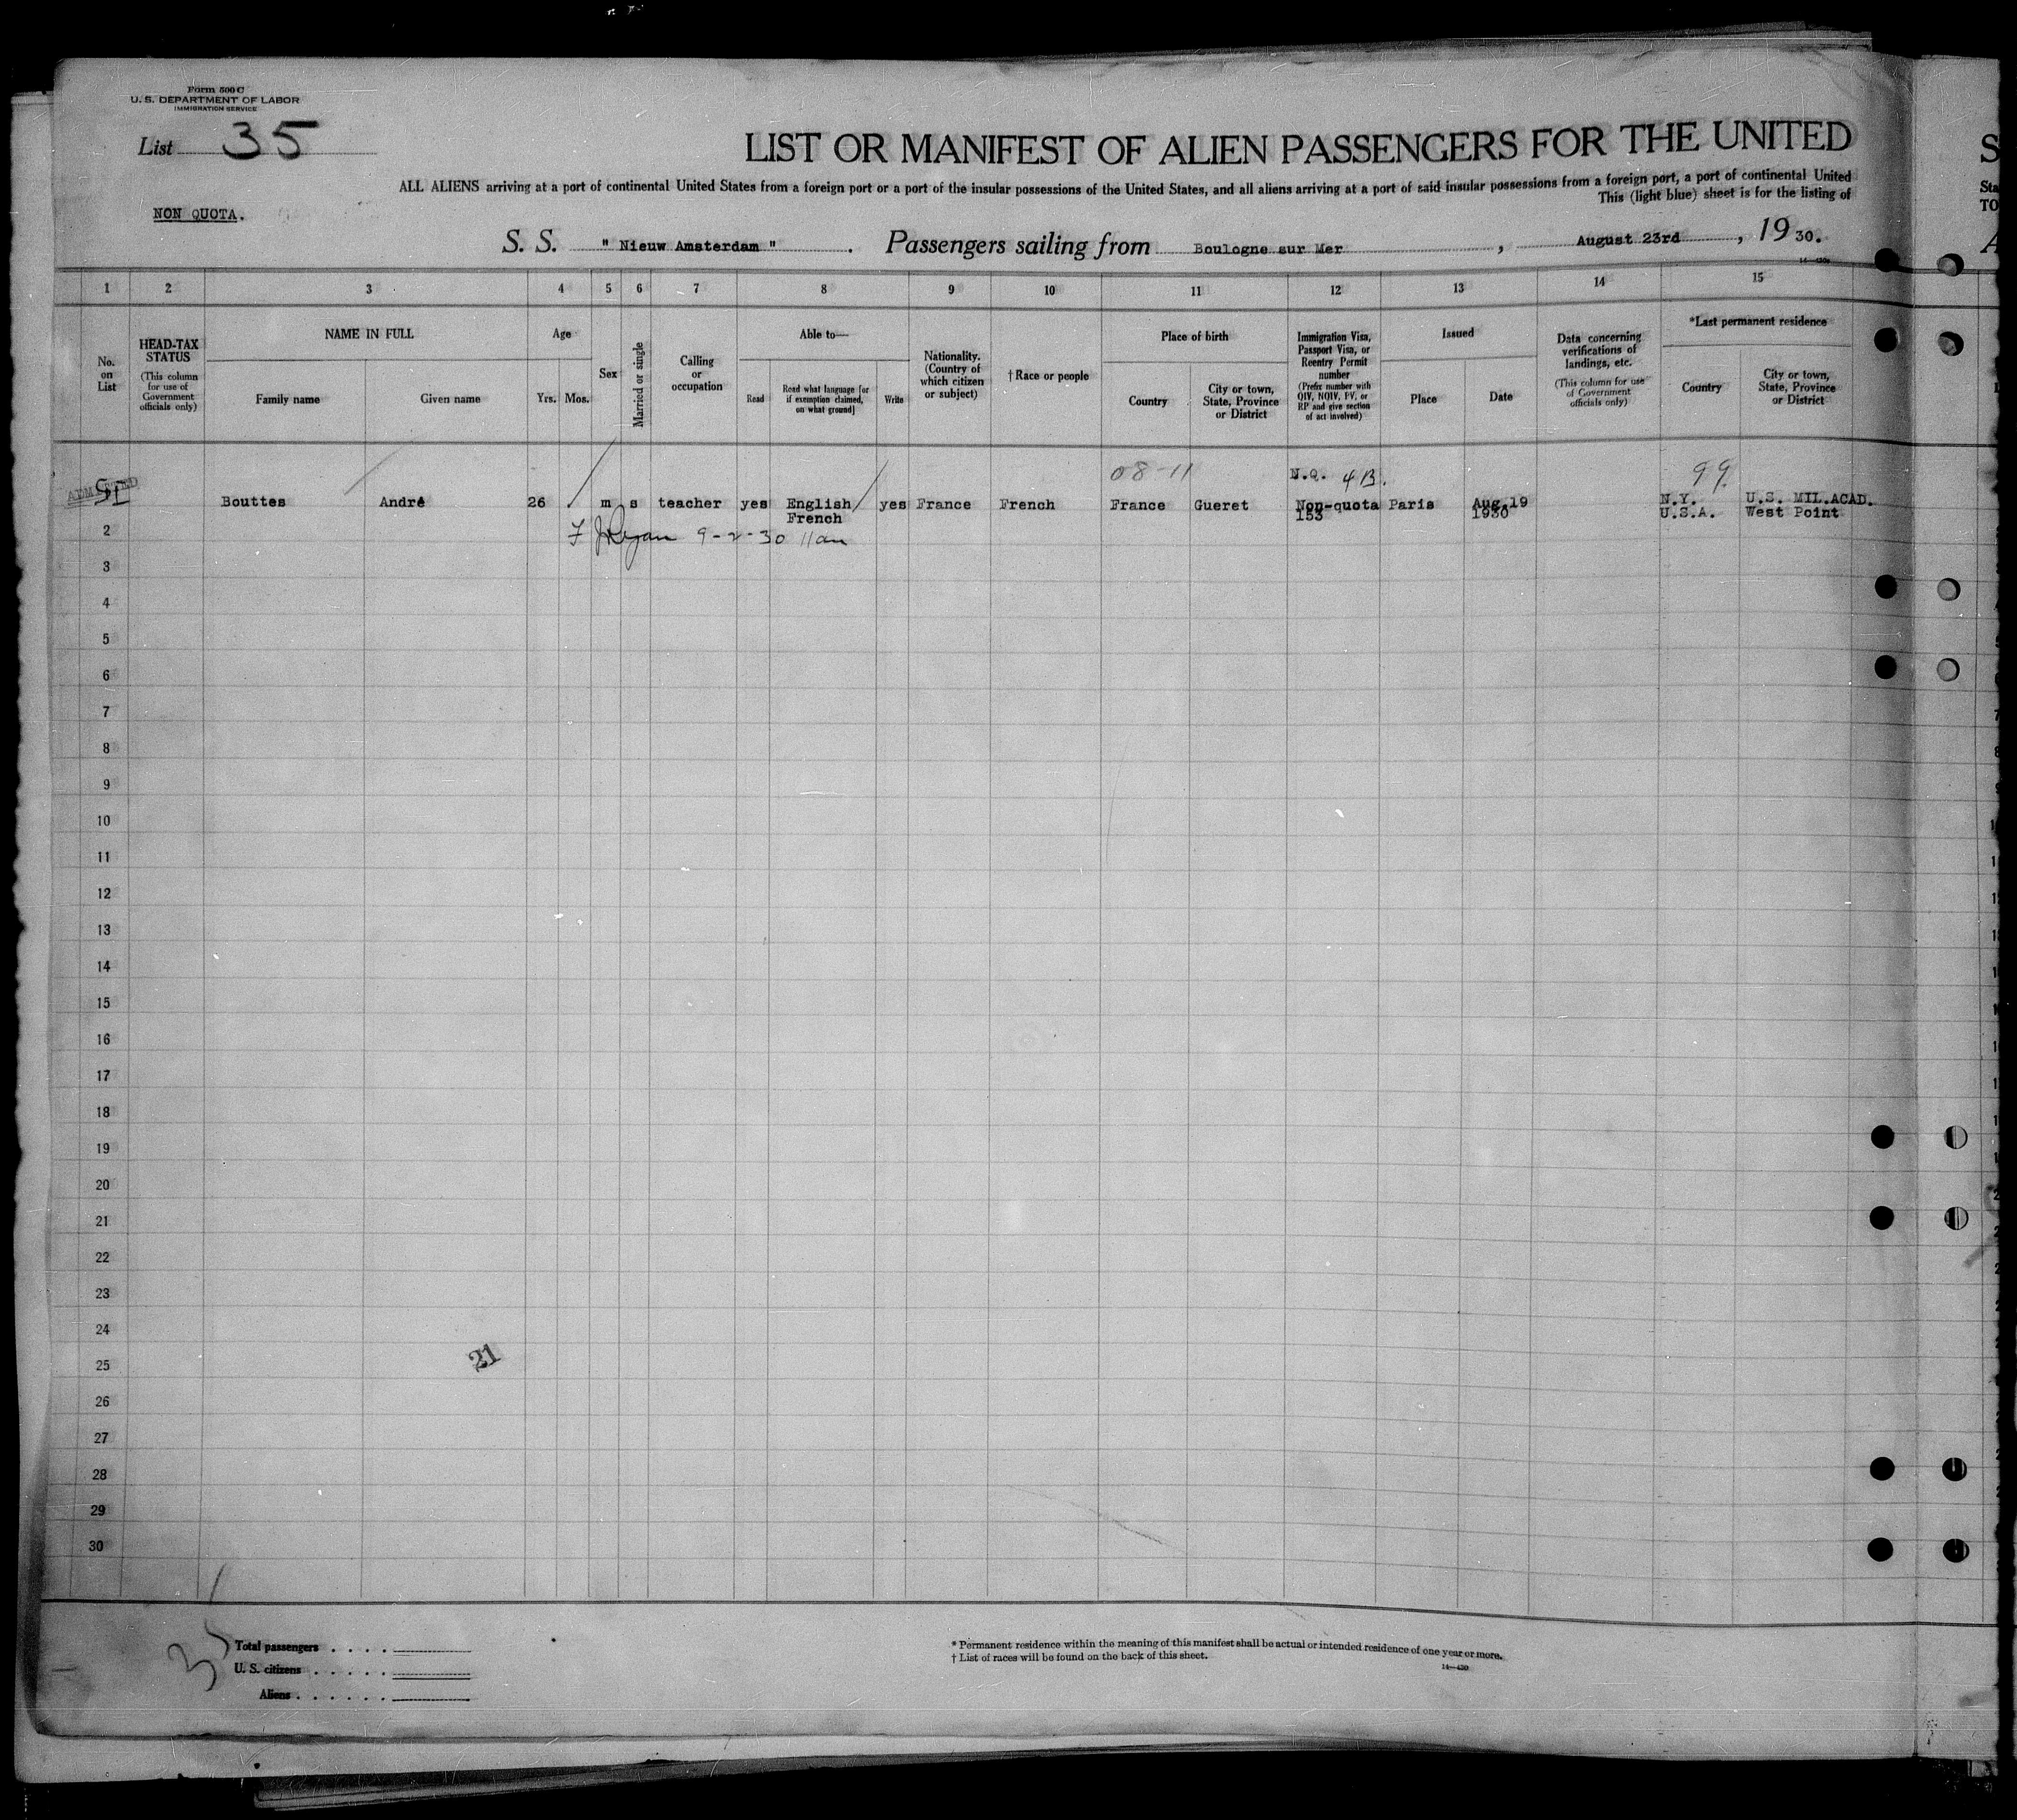 Form 500 C
U. S. DEPARTMENT OF LABOR
IMMIGRATION SERVICE
List 35
LIST OR MANIFEST OF ALIEN PASSENGERS FOR THE UNITED
ALL ALIENS arriving at a port of continental United States from a foreign port or a port of the insular possessions of the United States, and all aliens arriving at a port of said insular possessions from a foreign port, a port of continental United
This (light blue) sheet is for the listing of
NON QUOTA.
S. S. " Nieuw Amsterdam " . Passengers sailing from Boulogne sur Mer , August 23rd , 19 30.
1 2 3 4 5 6 7 8 9 10 11 12 13 14 15
No. on List
HEAD-TAX STATUS
(This column for use of Government officials only)
NAME IN FULL
Family name
Given name
Age
Yrs. Mos.
Sex
Married or single
Calling or occupation
Able to—
Read
Read what language [or if exemption claimed, on what ground]
Write
Nationality. (Country of which citizen or subject)
† Race or people
Place of birth
Country
City or town, State, Province or District
Immigration Visa, Passport Visa, or Reentry Permit number
(Prefix number with QIV, NQIV, PV, or RP and give section of act involved)
Issued
Place
Date
Data concerning verifications of landings, etc.
(This column for use of Government officials only)
*Last permanent residence
Country
City or town, State, Province or District
08-11 N.Q. 4B. 99
ADMITTED
Bouttes André 26 m s teacher yes English yes France French France Gueret Non-quota Paris Aug.19 N.Y. U.S. MIL.ACAD.
French 153 1930 U.S.A. West Point
2
Ryan 9-2-30 11am
3
4
5
6
7
8
9
10
11
12
13
14
15
16
17
18
19
20
21
22
23
24
21
25
26
27
28
29
30
Total passengers
U. S. citizens
Aliens
* Permanent residence within the meaning of this manifest shall be actual or intended residence of one year or more.
† List of races will be found on the back of this sheet.
14—430